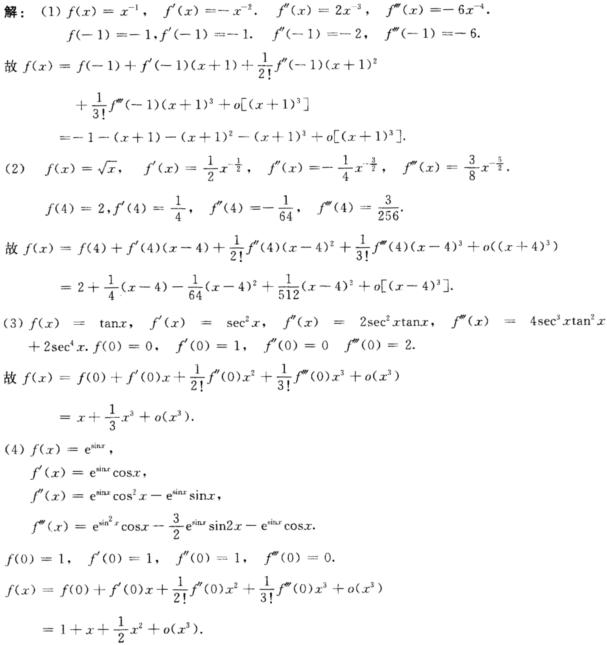 解：(1) f(x) = x⁻¹， f′(x) = −x⁻². f″(x) = 2x⁻³， f‴(x) = −6x⁻⁴.
f(−1) = −1, f′(−1) = −1. f″(−1) = −2， f‴(−1) = −6.
故 f(x) = f(−1) + f′(−1)(x+1) + \frac{1}{2!}f″(−1)(x+1)²
+ \frac{1}{3!}f‴(−1)(x+1)³ + o[(x+1)³]
= −1 − (x+1) − (x+1)² − (x+1)³ + o[(x+1)³].
(2) f(x) = \sqrt{x}， f′(x) = \frac{1}{2}x^{-\frac{1}{2}}， f″(x) = −\frac{1}{4}x^{-\frac{3}{2}}， f‴(x) = \frac{3}{8}x^{-\frac{5}{2}}.
f(4) = 2, f′(4) = \frac{1}{4}， f″(4) = −\frac{1}{64}， f‴(4) = \frac{3}{256}.
故 f(x) = f(4) + f′(4)(x−4) + \frac{1}{2!}f″(4)(x−4)² + \frac{1}{3!}f‴(4)(x−4)³ + o((x+4)³)
= 2 + \frac{1}{4}(x−4) − \frac{1}{64}(x−4)² + \frac{1}{512}(x−4)³ + o[(x−4)³].
(3) f(x) = tanx， f′(x) = sec²x， f″(x) = 2sec²xtanx， f‴(x) = 4sec³xtan²x
+ 2sec⁴x. f(0) = 0， f′(0) = 1， f″(0) = 0 f‴(0) = 2.
故 f(x) = f(0) + f′(0)x + \frac{1}{2!}f″(0)x² + \frac{1}{3!}f‴(0)x³ + o(x³)
= x + \frac{1}{3}x³ + o(x³).
(4) f(x) = e^{sinx}，
f′(x) = e^{sinx}cosx，
f″(x) = e^{sinx}cos²x − e^{sinx}sinx，
f‴(x) = e^{sin²x}cosx − \frac{3}{2}e^{sinx}sin2x − e^{sinx}cosx.
f(0) = 1， f′(0) = 1， f″(0) = 1， f‴(0) = 0.
f(x) = f(0) + f′(0)x + \frac{1}{2!}f″(0)x² + \frac{1}{3!}f‴(0)x³ + o(x³)
= 1 + x + \frac{1}{2}x² + o(x³).